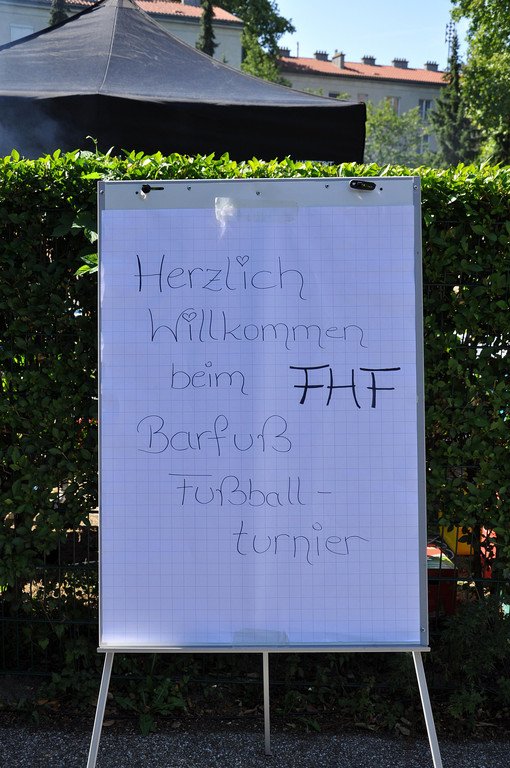 Herzlich
Willkommen
beim FHF
Barfuß
Fußball-
turnier